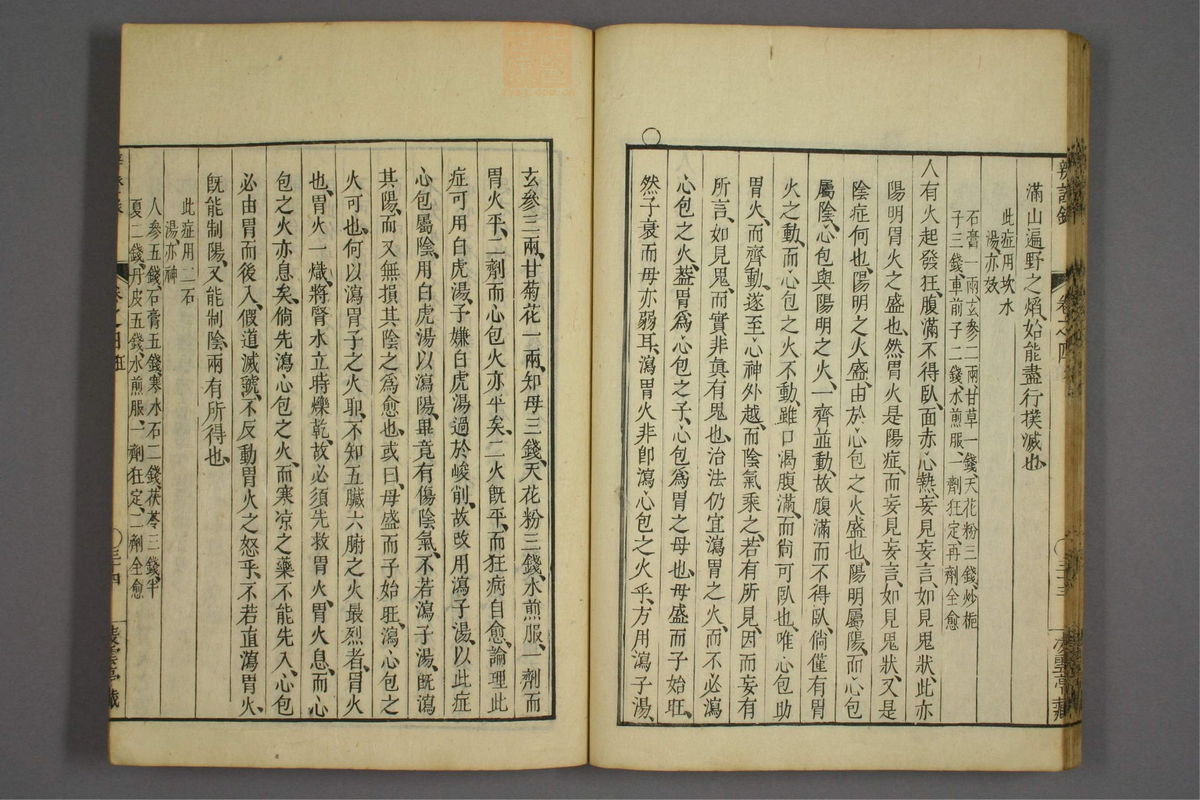 滿山遍野之焰、始能盡行撲滅也、
此症用坎水
湯、亦效
石膏一兩玄參二兩、甘草一錢天花粉三錢、炒梔
子三錢、車前子二錢、水煎服、一劑狂定、再劑全愈
人有火起發狂、腹滿不得臥、面赤心熱、妄見妄言、如見鬼狀、此亦
陽明胃火之盛也、然胃火是陽症、而妄見妄言、如見鬼狀、又是
陰症何也、陽明之火盛、由於心包之火盛也、陽明屬陽、而心包
屬陰、心包與陽明之火、一齊並動、故腹滿而不得臥、倘僅有胃
火之動、而心包之火不動、雖口渴腹滿、而尙可臥也、唯心包助
胃火、而齊動、遂至心神外越、而陰氣乘之、若有所見、因而妄有
所言、如見鬼、而實非眞有鬼也、治法仍宜瀉胃之火、而不必瀉
心包之火、葢胃爲心包之子、心包爲胃之母也、母盛而子始旺、
然子衰而母亦弱耳、瀉胃火非卽瀉心包之火乎、方用瀉子湯、
玄參三兩、甘菊花一兩、知母三錢、天花粉三錢水煎服、一劑而
胃火平、二劑而心包火亦平矣、二火旣平、而狂病自愈、論理此
症可用白虎湯、子嫌白虎湯過於峻削、故改用瀉子湯、以此症
心包屬陰、用白虎湯以瀉陽、畢竟有傷陰氣、不若瀉子湯、旣瀉
其陽、而又無損其陰之爲愈也、或曰、母盛而子始旺、瀉心包之
火可也、何以瀉胃子之火耶、不知五臟六腑之火最烈者、胃火
也、胃火一熾、將腎水立時爍乾、故必須先救胃火、胃火息、而心
包之火亦息矣、倘先瀉心包之火、而寒凉之藥不能先入、心包
必由胃而後入、假道滅虢、不反動胃火之怒乎、不若直瀉胃火、
旣能制陽、又能制陰、兩有所得也、
此症用二石
湯、亦神
人參五錢、石膏五錢、寒水石二錢、茯苓三錢、半
夏二錢、丹皮五錢、水煎服、一劑狂定、二劑全愈